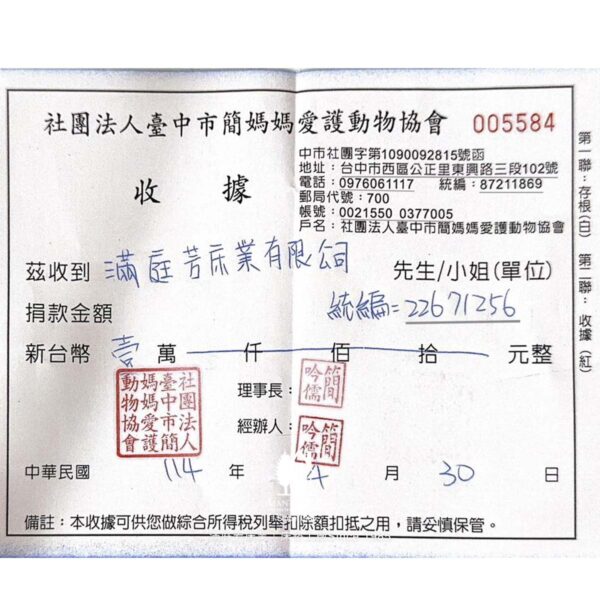 社團法人臺中市簡媽媽愛護動物協會 005584
收據
中市社團字第1090092815號函
地址：台中市西區公正里東興路三段102號
電話：0976061117 統編：87211869
郵局代號：700
帳號：0021550 0377005
戶名：社團法人臺中市簡媽媽愛護動物協會
茲收到 滿庭芳床業有限公司 先生/小姐(單位)
捐款金額 統編=22671256
新台幣 壹 萬 仟 佰 拾 元整
社團法人臺中市簡媽媽愛護動物協會
理事長： 簡吟儒
經辦人： 簡吟儒
中華民國 114 年 4 月 30 日
備註：本收據可供您做綜合所得稅列舉扣除額扣抵之用，請妥慎保管。
第一聯：存根(白) 第二聯：收據(紅)